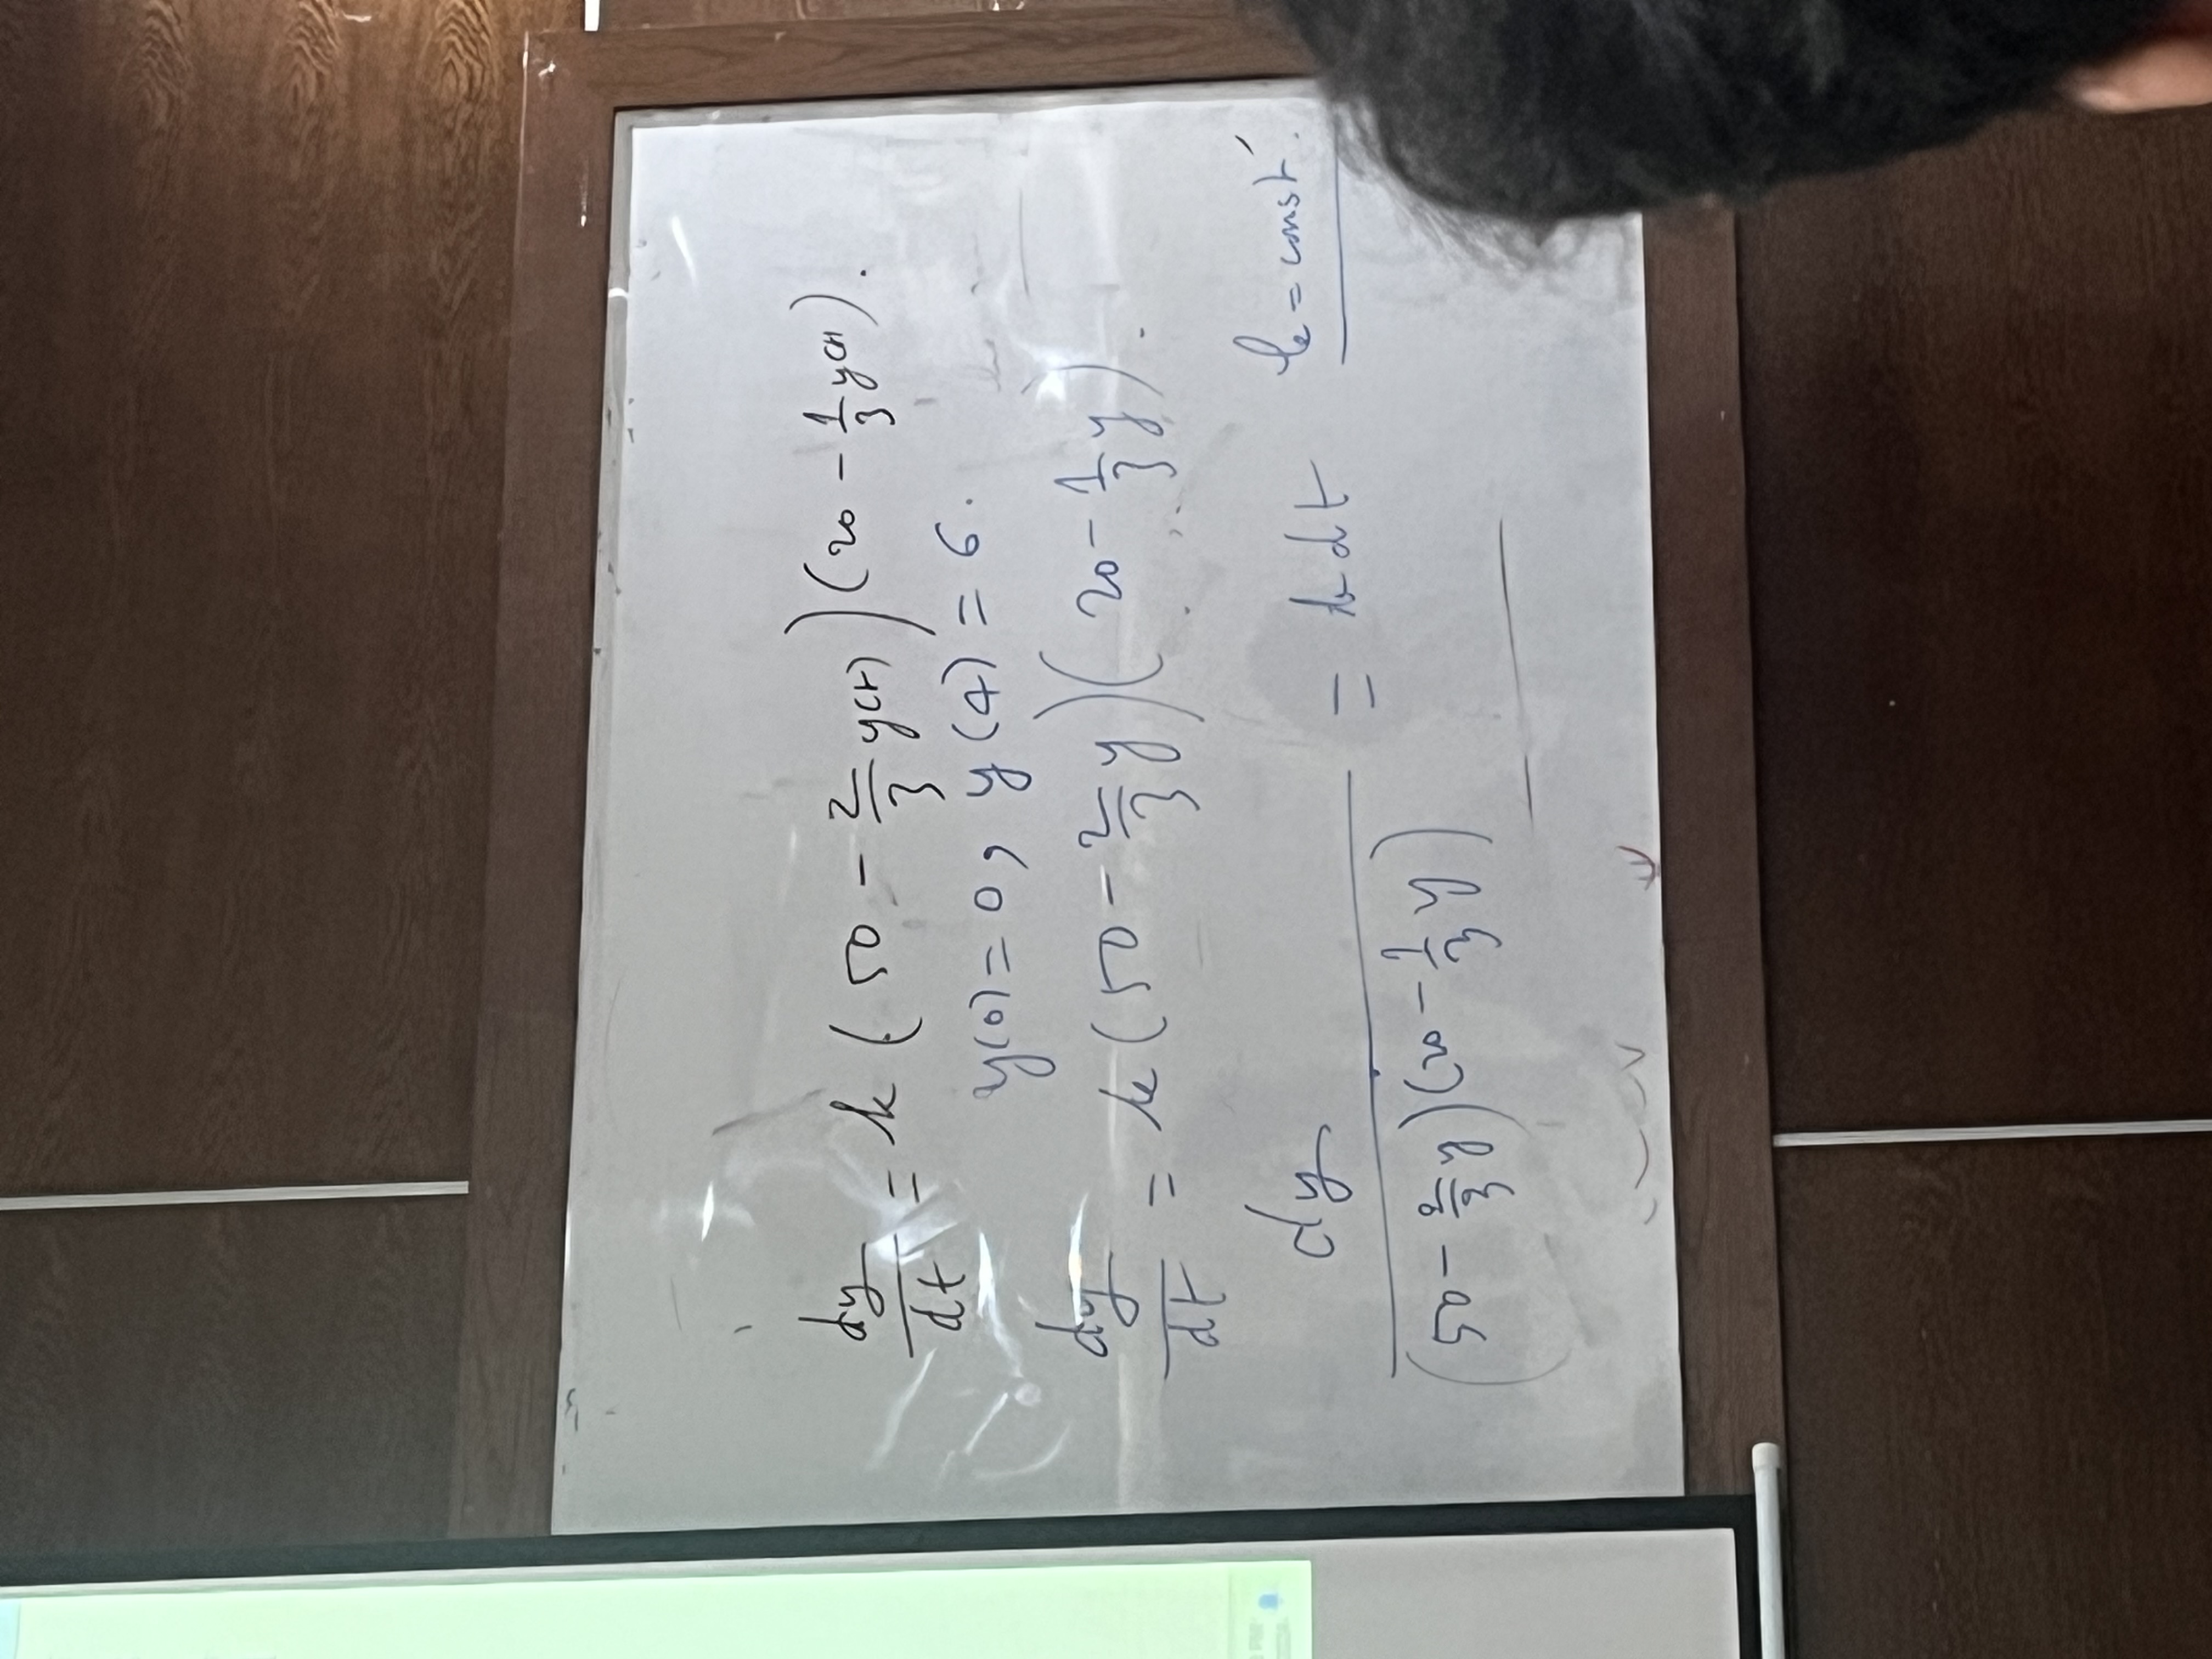 dy/dt = k (50 - 2/3 y(t)) (20 - 1/3 y(t)).
y(0) = 0, y(4) = 6.
dy/dt = k (50 - 2/3 y) (20 - 1/3 y).
dy / (50 - 2/3 y) (20 - 1/3 y) = k dt k = const.